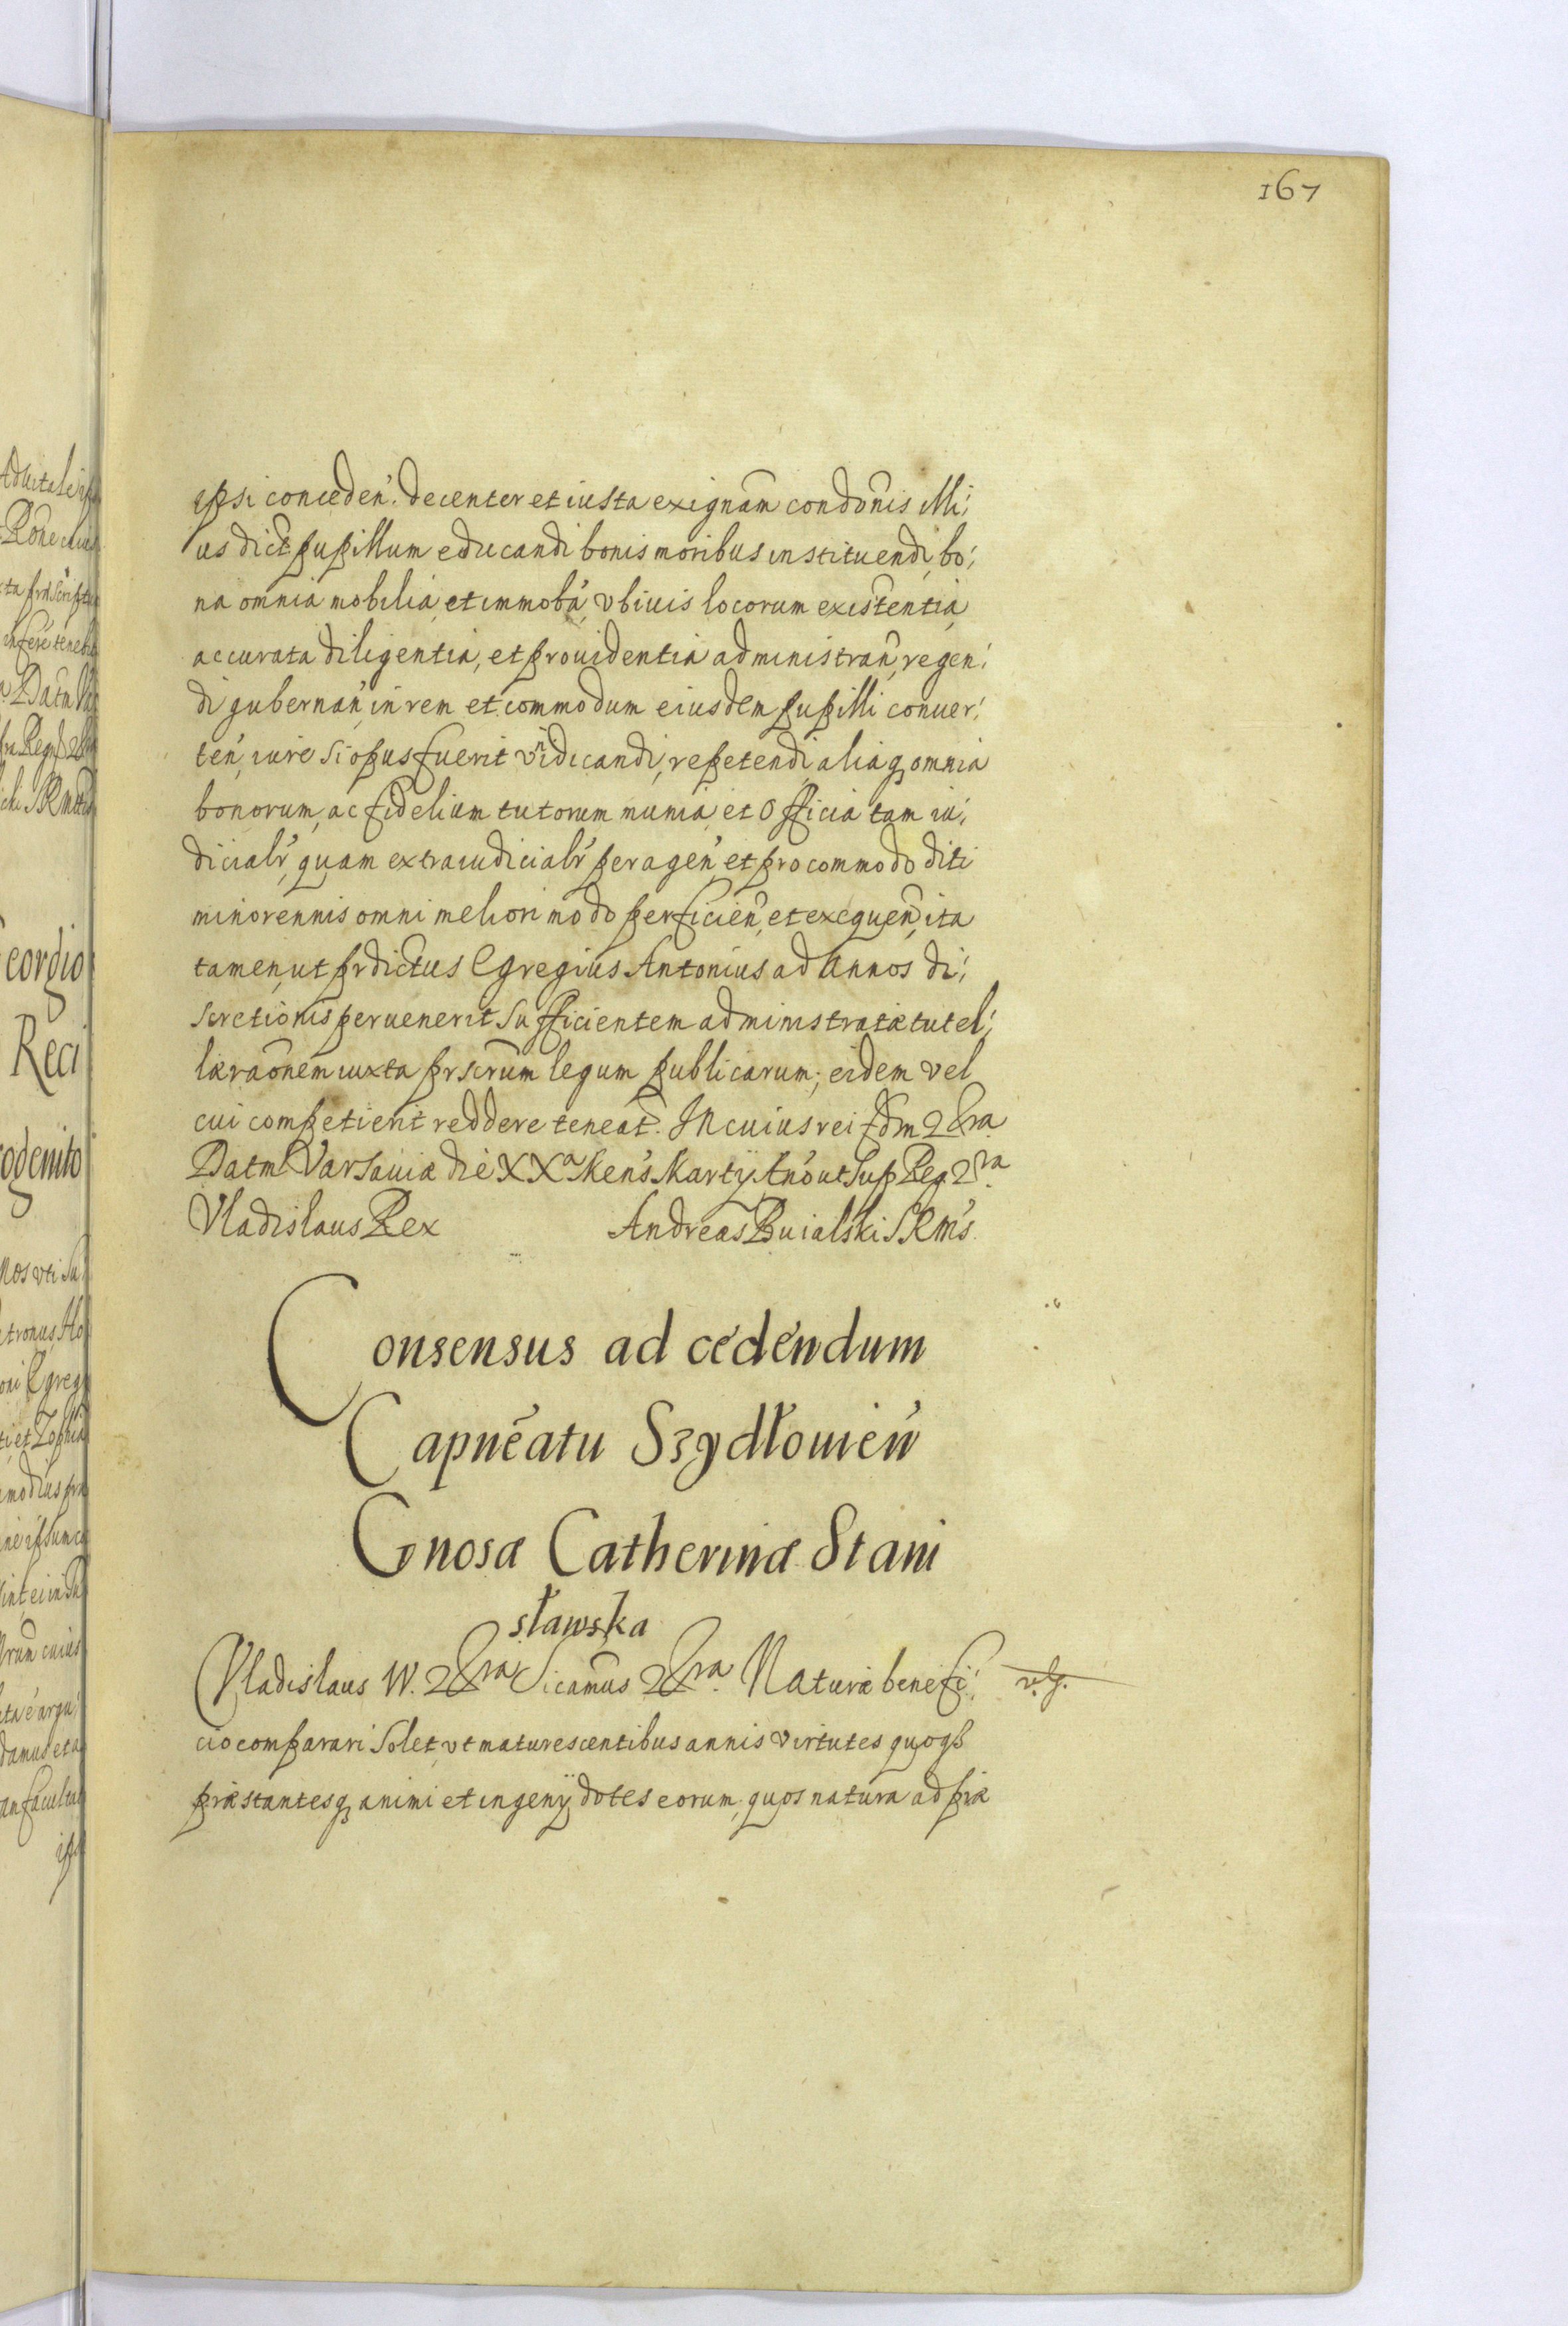 167
ipsi conceden. decenter et iusta exignam condonis illi,
us dict pupillum educandi bonis moribus instituendi, bo,
na omnia mobilia, et immoba, vbiuis locorum existentia,
accurata diligentia, et prouidentia administran, regen,
di gubernan, in rem et commodum eiusdem pupilli conuer,
ten, iure si opus fuerit vindicandi, repetendi, aliaq omnia
bonorum, ac fidelium tutorum munia, et Officia tam iu,
dicialr, quam extraiudicialr peragen, et pro commodo dicti
minorennis omni meliori modo perficien, et exequen, ita
tamen, ut prdictus Egregius Antonius ad Annos di,
scretionis peruenerit sufficientem administratæ tutel,
læ raonem iuxta prscrum legum publicarum, eidem vel
cui competierit reddere teneat. In cuius rei fdm &ra.
Datm Varsauiæ die XXa Mens Martÿ Ano ut sup Reg &ra.
Vladislaus Rex Andreas Buialski SRMs.
Consensus ad cedendum
Capneatu Szydłouien
Gnosæ Catherinæ Stani
sławska
Vladislaus IV. &ra Sicamus &ra. Naturæ benefi,
cio comparari solet, vt maturescentibus annis virtutes quoqz
præstantesq animi et ingenÿ dotes eorum, quos natura ad præ